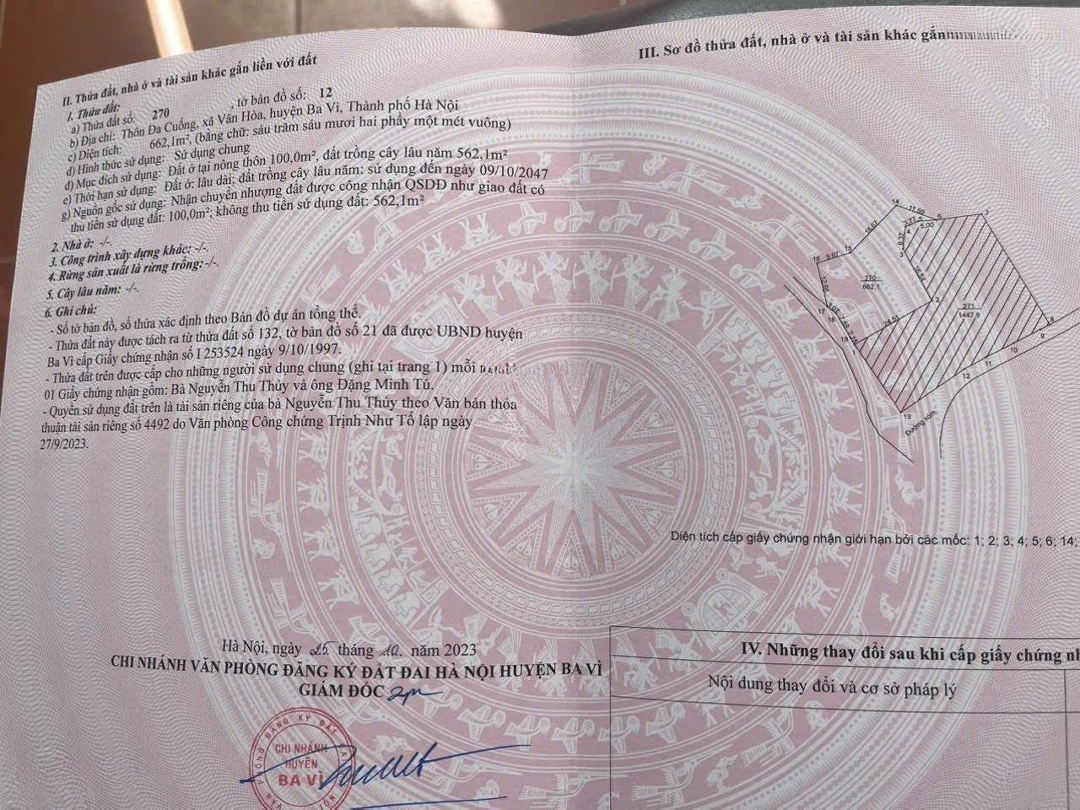 II. Thửa đất, nhà ở và tài sản khác gắn liền với đất
1. Thửa đất:
a) Thửa đất số: 270 , tờ bản đồ số: 12
b) Địa chỉ: Thôn Đa Cuống, xã Vân Hòa, huyện Ba Vì, Thành phố Hà Nội
c) Diện tích: 662,1m², (bằng chữ: sáu trăm sáu mươi hai phẩy một mét vuông)
d) Hình thức sử dụng: Sử dụng chung
đ) Mục đích sử dụng: Đất ở tại nông thôn 100,0m², đất trồng cây lâu năm 562,1m²
e) Thời hạn sử dụng: Đất ở: lâu dài; đất trồng cây lâu năm: sử dụng đến ngày 09/10/2047
g) Nguồn gốc sử dụng: Nhận chuyển nhượng đất được công nhận QSDĐ như giao đất có
thu tiền sử dụng đất: 100,0m²; không thu tiền sử dụng đất: 562,1m²
2. Nhà ở: -/-.
3. Công trình xây dựng khác: -/-.
4. Rừng sản xuất là rừng trồng: -/-.
5. Cây lâu năm: -/-.
6. Ghi chú:
- Số tờ bản đồ, số thửa xác định theo Bản đồ dự án tổng thể.
- Thửa đất này được tách ra từ thửa đất số 132, tờ bản đồ số 21 đã được UBND huyện
Ba Vì cấp Giấy chứng nhận số I 253524 ngày 9/10/1997.
- Thửa đất trên được cấp cho những người sử dụng chung (ghi tại trang 1) mỗi
01 Giấy chứng nhận gồm: Bà Nguyễn Thu Thủy và ông Đặng Minh Tú.
- Quyền sử dụng đất trên là tài sản riêng của bà Nguyễn Thu Thủy theo Văn bản thỏa
thuận tài sản riêng số 4492 do Văn phòng Công chứng Trịnh Như Tố lập ngày
27/9/2023.
Hà Nội, ngày 25 tháng 10 năm 2023
CHI NHÁNH VĂN PHÒNG ĐĂNG KÝ ĐẤT ĐAI HÀ NỘI HUYỆN BA VÌ
GIÁM ĐỐC
CHI NHÁNH
HUYỆN
BA VÌ
III. Sơ đồ thửa đất, nhà ở và tài sản khác gắn
14
11.59
6
7
5.00
19.67
15
9.67
16
270
662.1
16.54
2
271
1447.9
24.50
17
18
19
8
9
10
11
12
13
Đường xóm
Diện tích cấp giấy chứng nhận giới hạn bởi các mốc: 1; 2; 3; 4; 5; 6; 14;
IV. Những thay đổi sau khi cấp giấy chứng
Nội dung thay đổi và cơ sở pháp lý